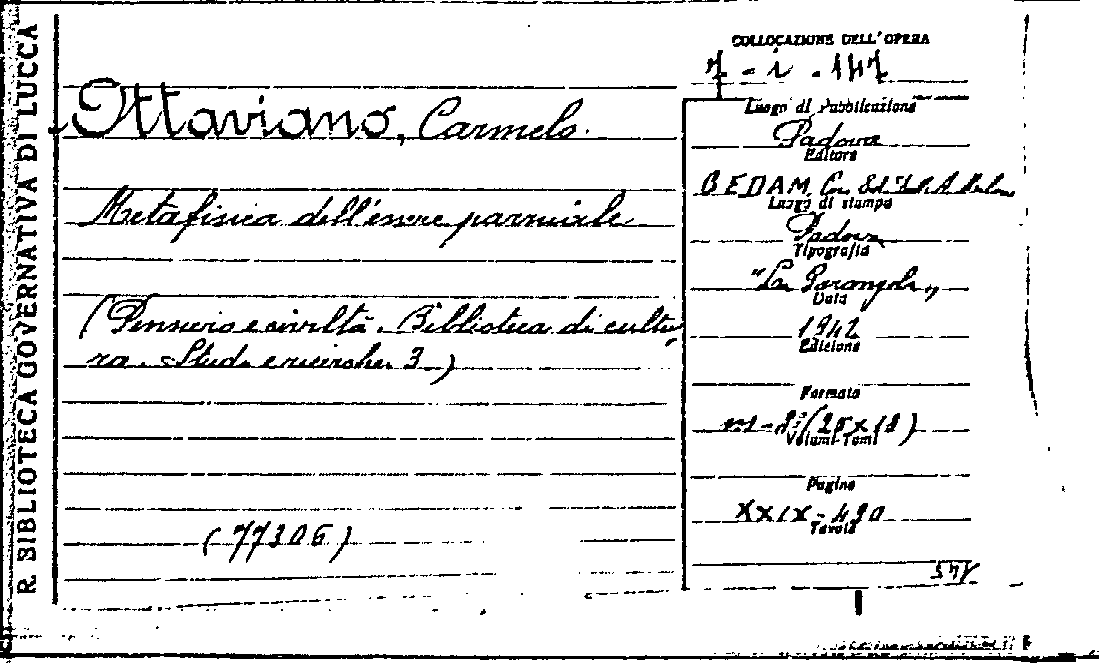 R. BIBLIOTECA GOVERNATIVA DI LUCCA
Ottaviano, Carmelo.
Metafisica dell'essere parziale
(Pensiero e civiltà. Biblioteca di cultu-
ra. Studi e ricerche. 3)
(77306)
COLLOCAZIONE DELL'OPERA
7 - i - 147
Luogo di Pubblicazione
Padova
Editore
CEDAM, Ca.
Luogo di stampa
Padova
Tipografia
"La Garangola"
Data
1942
Edizione
Formato
in-8° (25x18)
Volumi-Tomi
Pagine
XXIX-490
Tavole